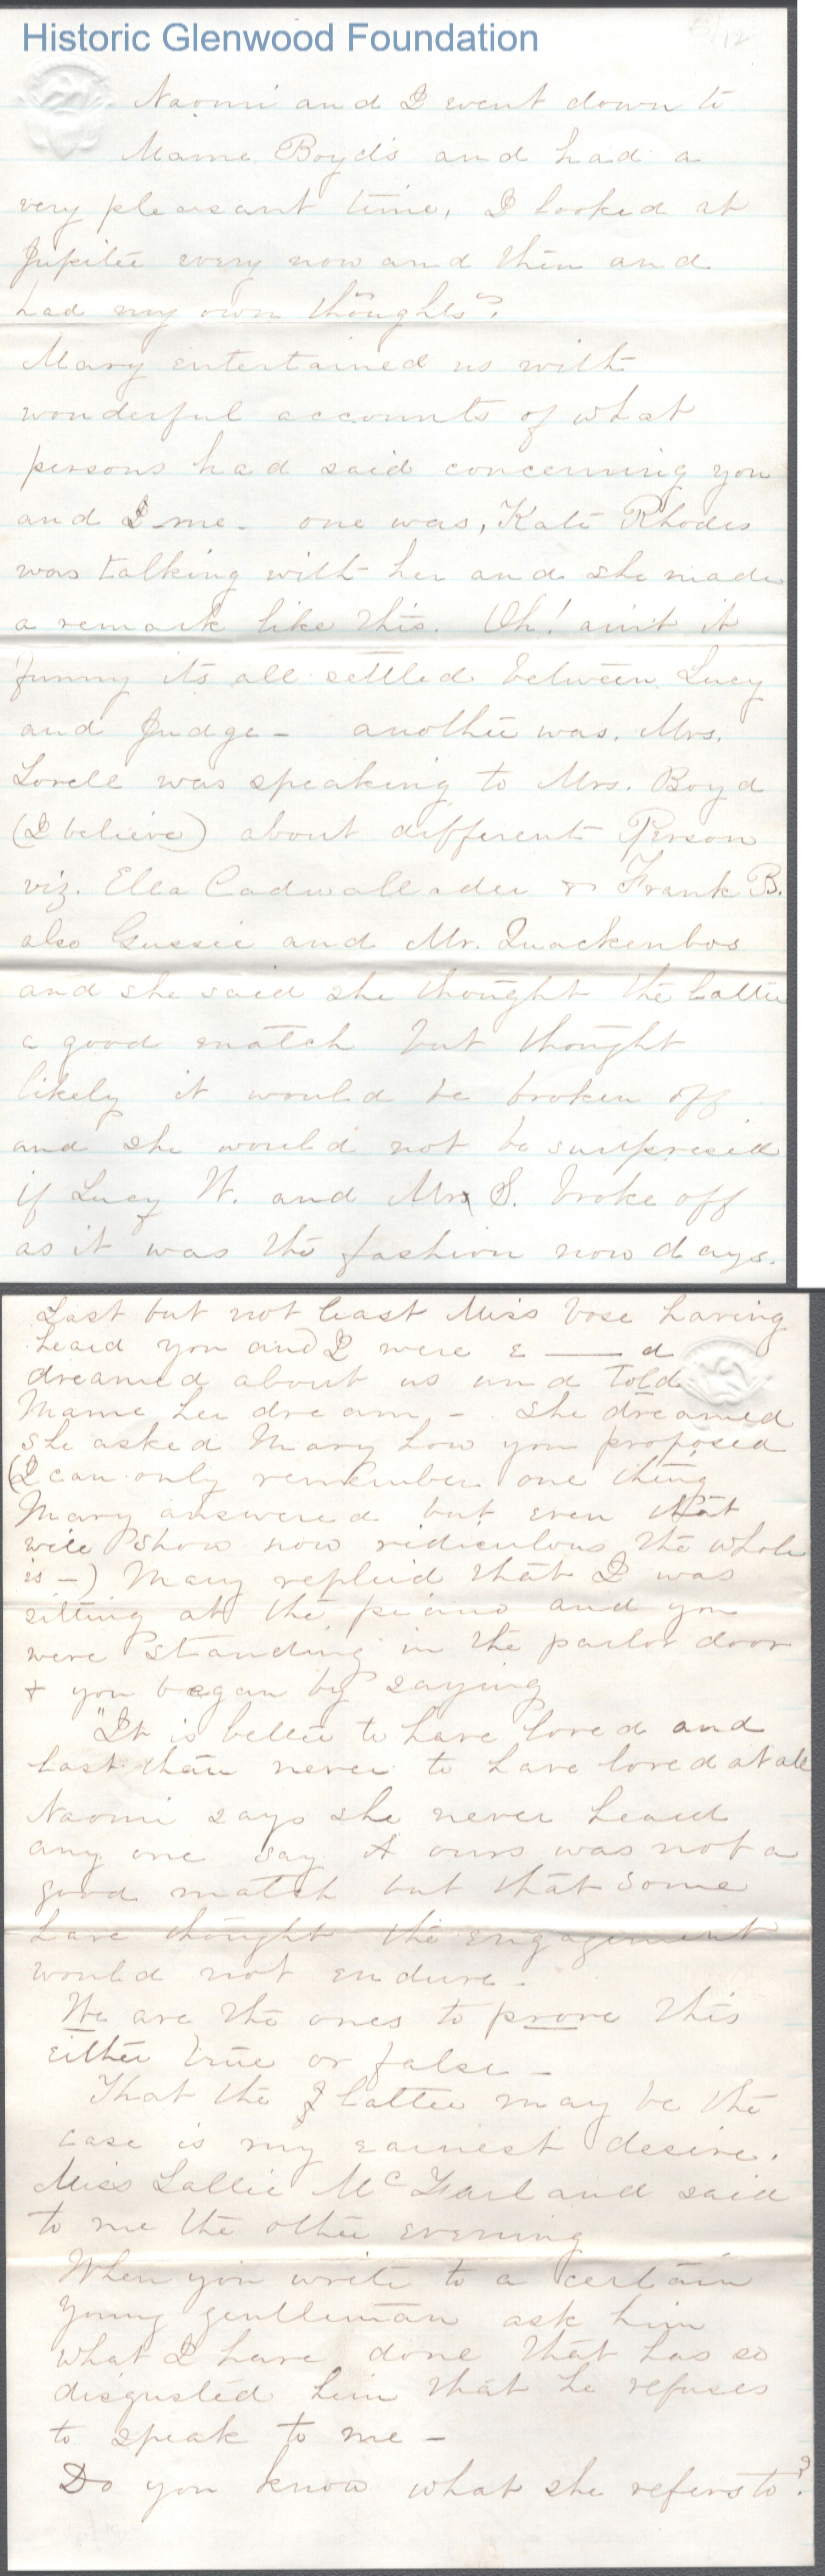 Historic Glenwood Foundation
Naomi and I went down to
Mame Boyd's and had a
very pleasant time, I looked at
Jupiter every now and then and
had my own "thoughts".
Mary entertained us with
wonderful accounts of what
persons had said concerning you
and I me - one was, Kate Rhodes
was talking with her and she made
a remark like this. Oh! ain't it
funny its all settled between Lucy
and Judge - another was. Mrs.
Lovell was speaking to Mrs. Boyd
(I believe) about different Person
viz. Ella Cadwallader & Frank B.
also Gussie and Mr. Quackenbos
and she said she thought the latter
a good match but thought
likely it would be broken off
and she would not be surpresed
if Lucy W. and Mr S. broke off
as it was the fashion now days.
Last but not least Miss Vose having
heard you and I were e—d
dreamed about us and told
Mame her dream - she dreamed
she asked Mary how you proposed
(I can only remember one thing
Mary answered but even that
will show how ridiculous the whole
is -) Mary replied that I was
sitting at the piano and you
were standing in the parlor door
+ you began by saying
"It is better to have loved and
lost than never to have loved at all
Naomi says she never heard
any one say ours was not a
good match but that some
have thought the engagement
would not endure -
We are the ones to prove this
either true or false -
That the latter may be the
case is my earnest desire.
Miss Lallie McFarland said
to me the other evening
When you write to a certain
young gentleman ask him
what I have done that has so
disgusted him that he refuses
to speak to me -
Do you know what she refers to?